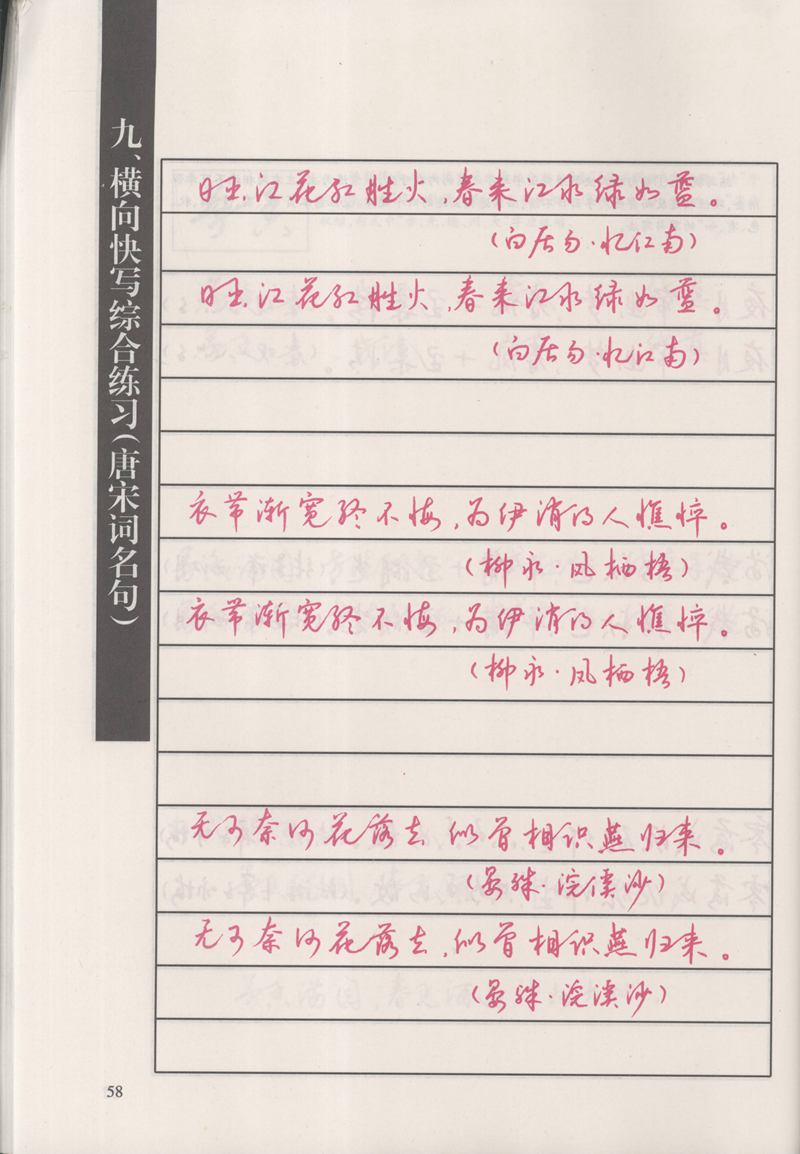 九、横向快写综合练习(唐宋词名句)
日出江花红胜火,春来江水绿如蓝。
(白居易·忆江南)
日出江花红胜火,春来江水绿如蓝。
(白居易·忆江南)
衣带渐宽终不悔,为伊消得人憔悴。
(柳永·凤栖梧)
衣带渐宽终不悔,为伊消得人憔悴。
(柳永·凤栖梧)
无可奈何花落去 似曾相识燕归来。
(晏殊·浣溪沙)
无可奈何花落去,似曾相识燕归来。
(晏殊·浣溪沙)
58